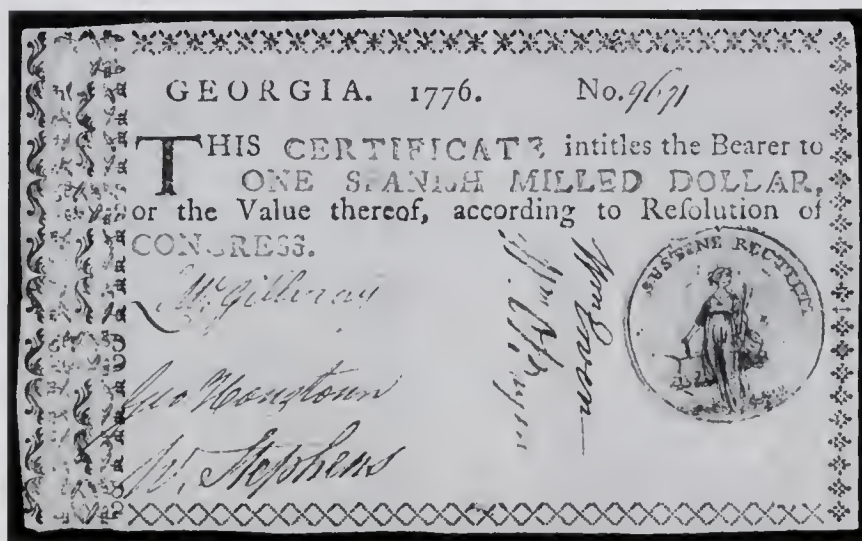 GEORGIA. 1776. No. 9671
THIS CERTIFICATE intitles the Bearer to
ONE SPANISH MILLED DOLLAR,
or the Value thereof, according to Reſolution of
CONGRESS.
SUSTINE RECTUM
W. Stephens